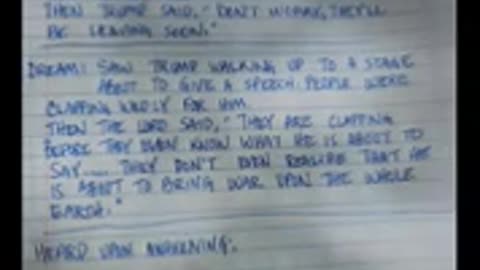 THEN TRUMP SAID, "DON'T WORRY, THEY'LL
BE LEAVING SOON."
DREAM: SAW TRUMP WALKING UP TO A STAGE
ABOUT TO GIVE A SPEECH. PEOPLE WERE
CLAPPING WILDLY FOR HIM.
THEN THE LORD SAID, "THEY ARE CLAPPING
BEFORE THEY EVEN KNOW WHAT HE IS ABOUT TO
SAY..... THEY DON'T EVEN REALIZE THAT HE
IS ABOUT TO BRING WAR UPON THE WHOLE
EARTH."
HEARD UPON AWAKENING: